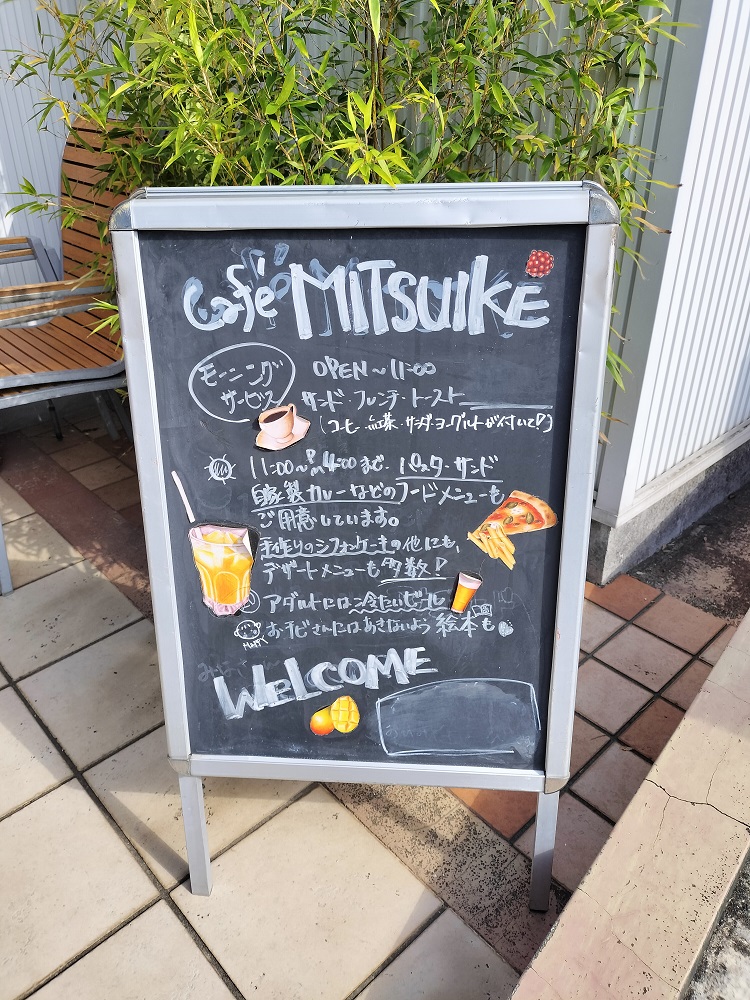 Café MITSUIKE
モーニング
サービス
OPEN～11:00
サンド・フレンチ・トースト
(コーヒー・紅茶・サラダ・ヨーグルトが付いて!)
11:00～PM4:00まで・パスタ・サンド
自家製カレーなどのフードメニューも
ご用意しています。
手作りのシフォンケーキの他にも、
デザートメニューも多数!
アダルトには冷たいビール
お子ビさんにはあきないよう絵本も
WELCOME